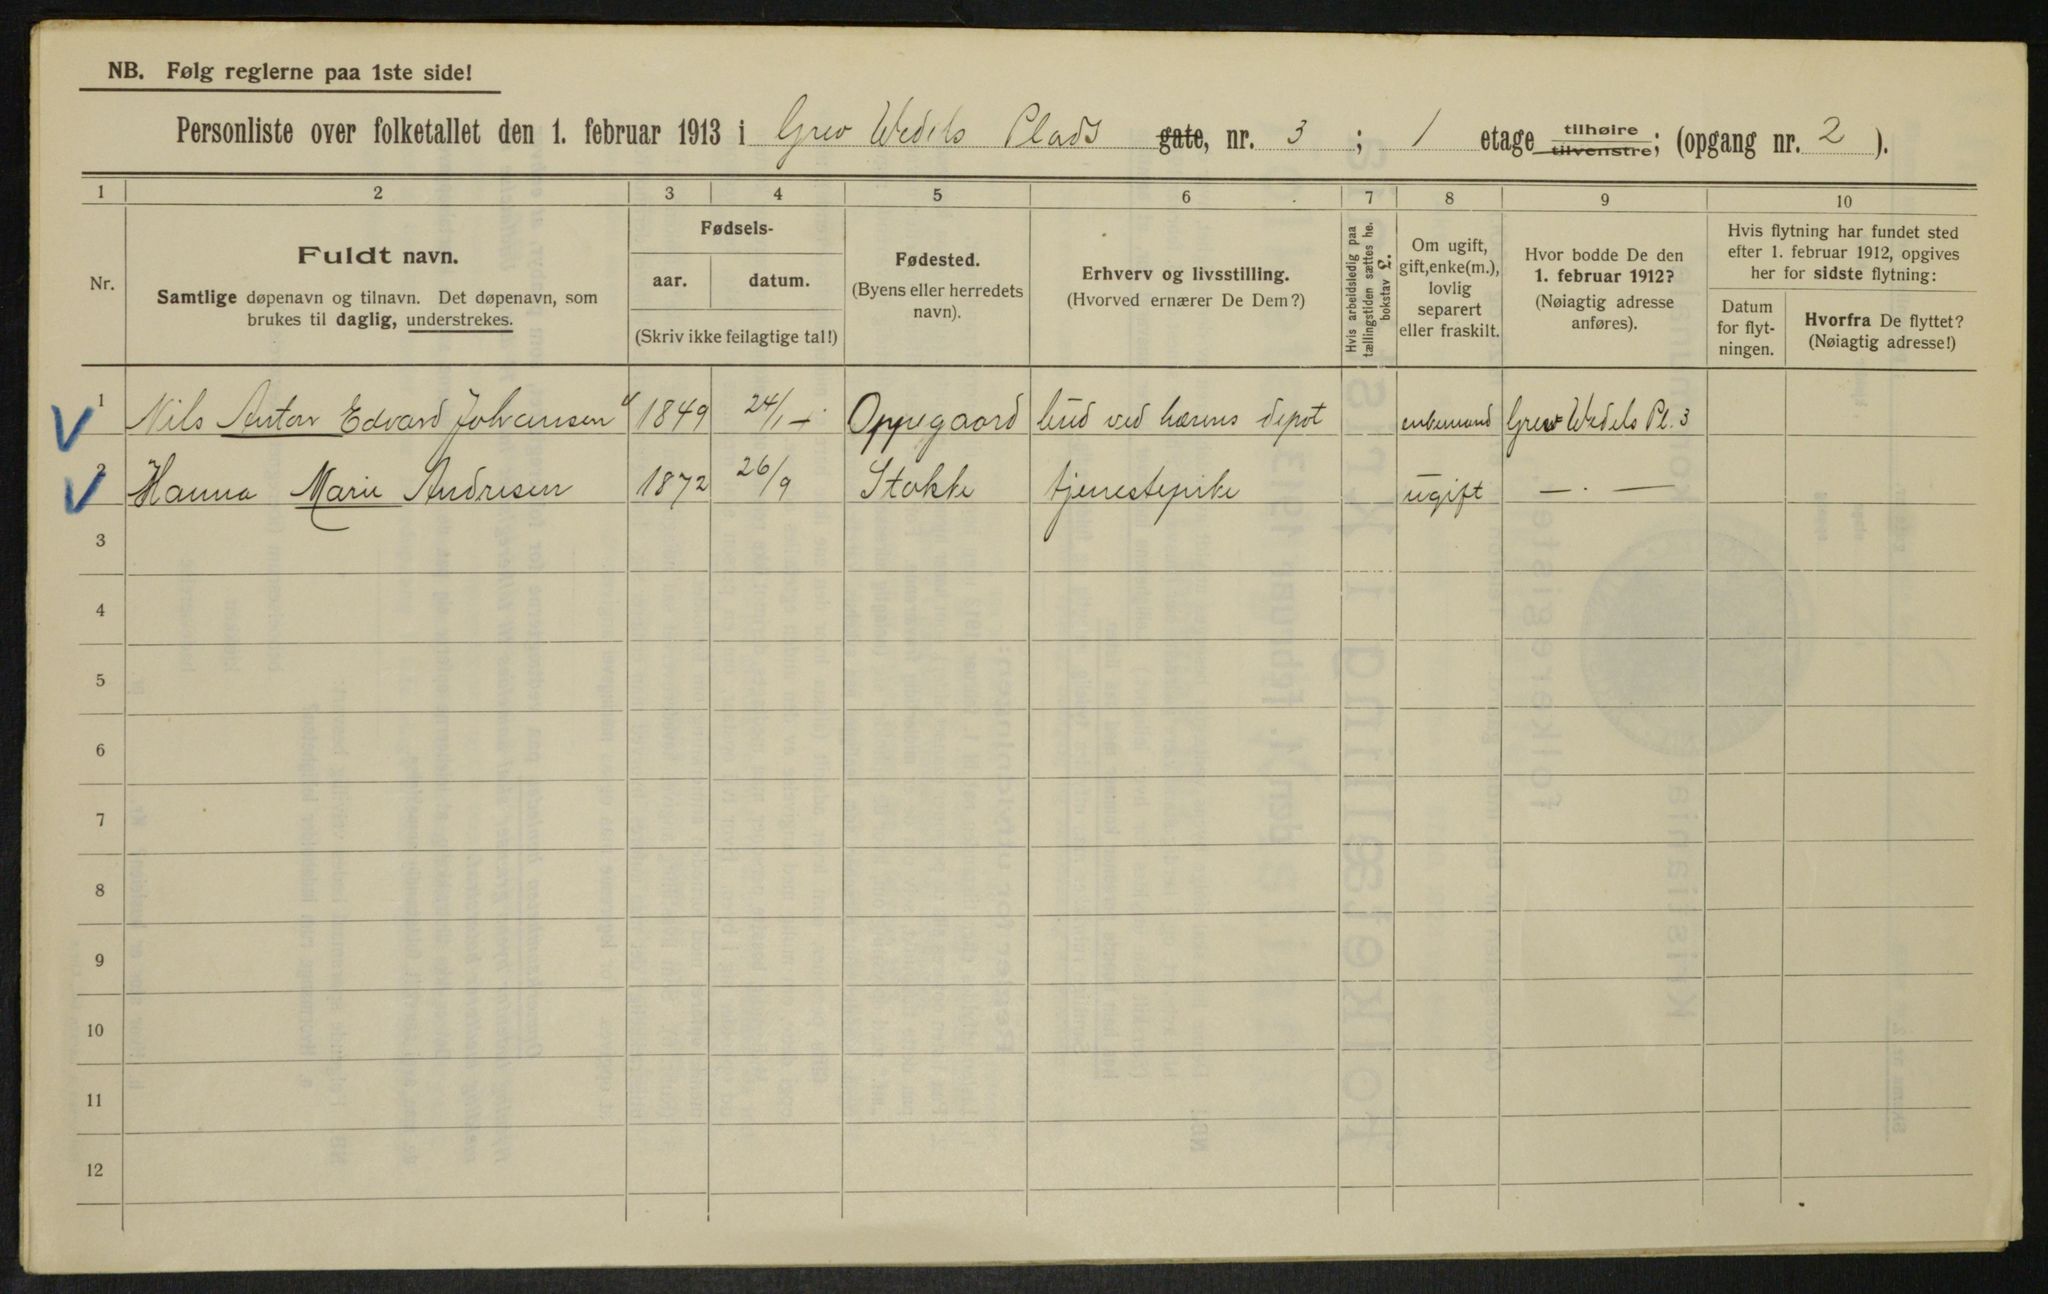 NB. Følg reglerne paa 1ste side!
Personliste over folketallet den 1. februar 1913 i Grev Wedels Plads gate, nr. 3 ; 1 etage tilhøire tilvenstre; (opgang nr. 2 ).
1 2 3 4 5 6 7 8 9 10
Nr.
Fuldt navn.
Samtlige døpenavn og tilnavn. Det døpenavn, som
brukes til daglig, understrekes.
Fødsels-
aar. datum.
(Skriv ikke feilagtige tal!)
Fødested.
(Byens eller herredets
navn).
Erhverv og livsstilling.
(Hvorved ernærer De Dem?)
Hvis arbeidsledig paa
tællingstiden sættes he.
bokstav L.
Om ugift,
gift, enke(m.),
lovlig
separert
eller fraskilt.
Hvor bodde De den
1. februar 1912?
(Nøiagtig adresse
anføres).
Hvis flytning har fundet sted
efter 1. februar 1912, opgives
her for sidste flytning:
Datum
for flyt-
ningen.
Hvorfra De flyttet?
(Nøiagtig adresse!)
1 Nils Anton Edvard Johansen 1849 24/1 Oppegaard bud ved hærens depot enkemand Grev Wedels Pl. 3
2 Hanna Marie Andresen 1872 26/9 Stokke tjenestepike ugift — . —
3
4
5
6
7
8
9
10
11
12